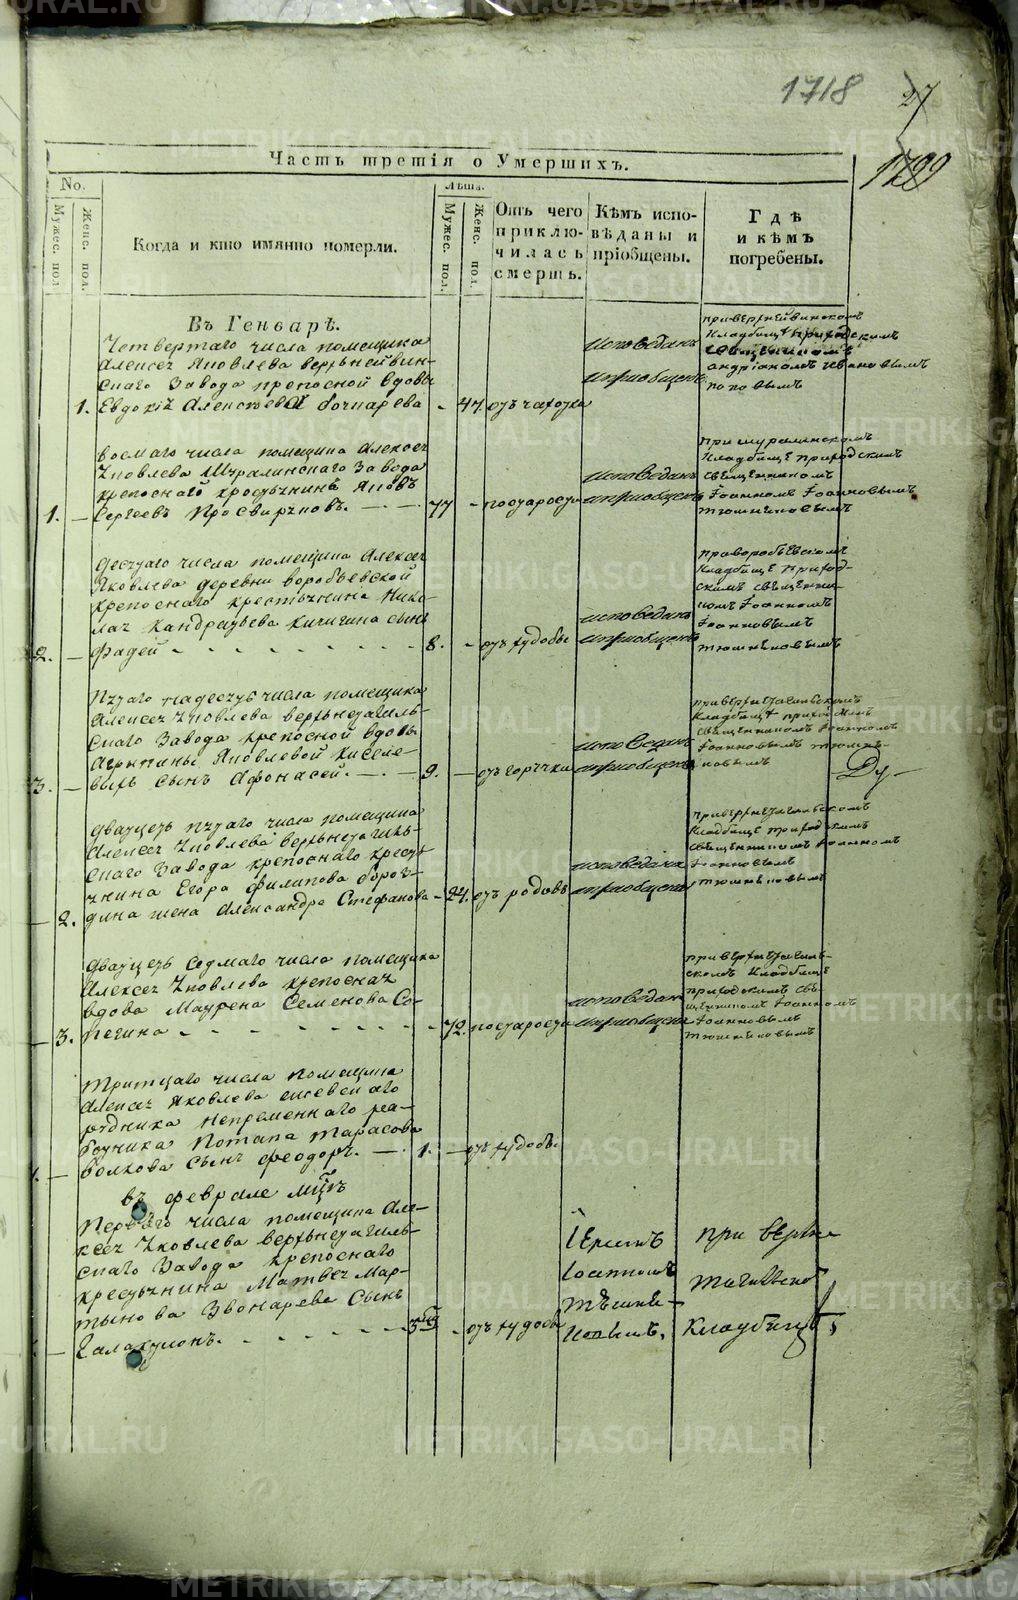 1718
27
1799
Часть третія о Умершихъ.
No.
Мужес. пол
Женс. пол.
Когда и кто имянно померли.
Лѣта.
Мужес. пол.
Женс. пол.
Отъ чего приклю-чилась смерть.
Кѣмъ испо-вѣданы и пріобщены.
Гдѣ и кѣмъ погребены.
Въ Генварѣ.
Четвертаго числа помещика
Алексея Яковлева верхьнейвин-
скаго Завода крепосной вдовы
1. Евдокіи Алексеевой Бочкарева - 47 отъ чахотки
исповедана
и приобщена
при верхнейвинскомъ
Кладбище приходскимъ
священикомъ
андріаномъ ивановымъ
поповымъ
восмаго числа помещика Алексея
Яковлева Шуралинскаго Завода
крепоснаго кресьтянинъ Яковъ
1. — Сергеевъ Просвирековъ. — 77 - постарости
исповеданъ
и приобщенъ
при шуралинскомъ
Кладбище приходскимъ
священикомъ
Иоанномъ Иоанновымъ
тюшняковымъ
десятаго числа помещика Алексея
Яковлева деревни воробьевской
крепоснаго крестьянина Нико-
лая Кандратьева Кичигина сынъ
2. — Фадей - 8. - отъ худобы
исповеданъ
и приобщенъ
приворобьевскомъ
Кладбище приход-
скимъ священи-
комъ Иоанномъ
Иоанновымъ
тюшняковымъ
Пятаго надесять числа помещика
Алексея Яковлева верхьнетагиль-
скаго Завода крепосной вдовы
Агрыпины Яковлевой Киселе-
3. — выхъ сынъ Афонасей. — 9. — отъ горячки
исповеданъ
и приобщенъ
приверхнетагильскомъ
Кладбище приходскимъ
священикомъ Иоанномъ
Иоанновымъ тюшня-
ковымъ
Дватцеть пятаго числа помещика
Алексея Яковлева верхьнетагиль-
скаго Завода крепоснаго кресть-
янина Егора Филипова Бород-
— 2. дина жена Александра Стефанова - 24. отъ родовъ
исповедана
и приобщена
приверхнетагильскомъ
Кладбище приходскимъ
священикомъ Иоанномъ
Иоанновымъ
тюшняковымъ
Двацеть Седмаго числа помещика
Алексея Яковлева крепосная
вдова Маурена Семенова Со-
— 3. пегина - 72. постарости
исповедана
и приобщена
приверхнетагиль-
скомъ Кладбище
приходскимъ свя-
щеникомъ Иоанномъ
Иоанновымъ
тюшняковымъ
Тритцаго числа помещика
Алексея Яковлева
рудника Непременнаго ра-
ботника Потапа Тарасова
— Волкова сынъ Феодоръ. — 1. — отъ худобы
въ феврале
Перваго числа помещика Але-
ксея Яковлева верхьнетагиль-
скаго Завода крепоснаго
кресьтянина Матвея Мар-
тынова Звонарева Сынъ
— Галактионъ. - отъ худобы
Иереемъ
Иоанномъ
Тюшня-
ковымъ.
при верхне
тагильскомъ
Кладбище